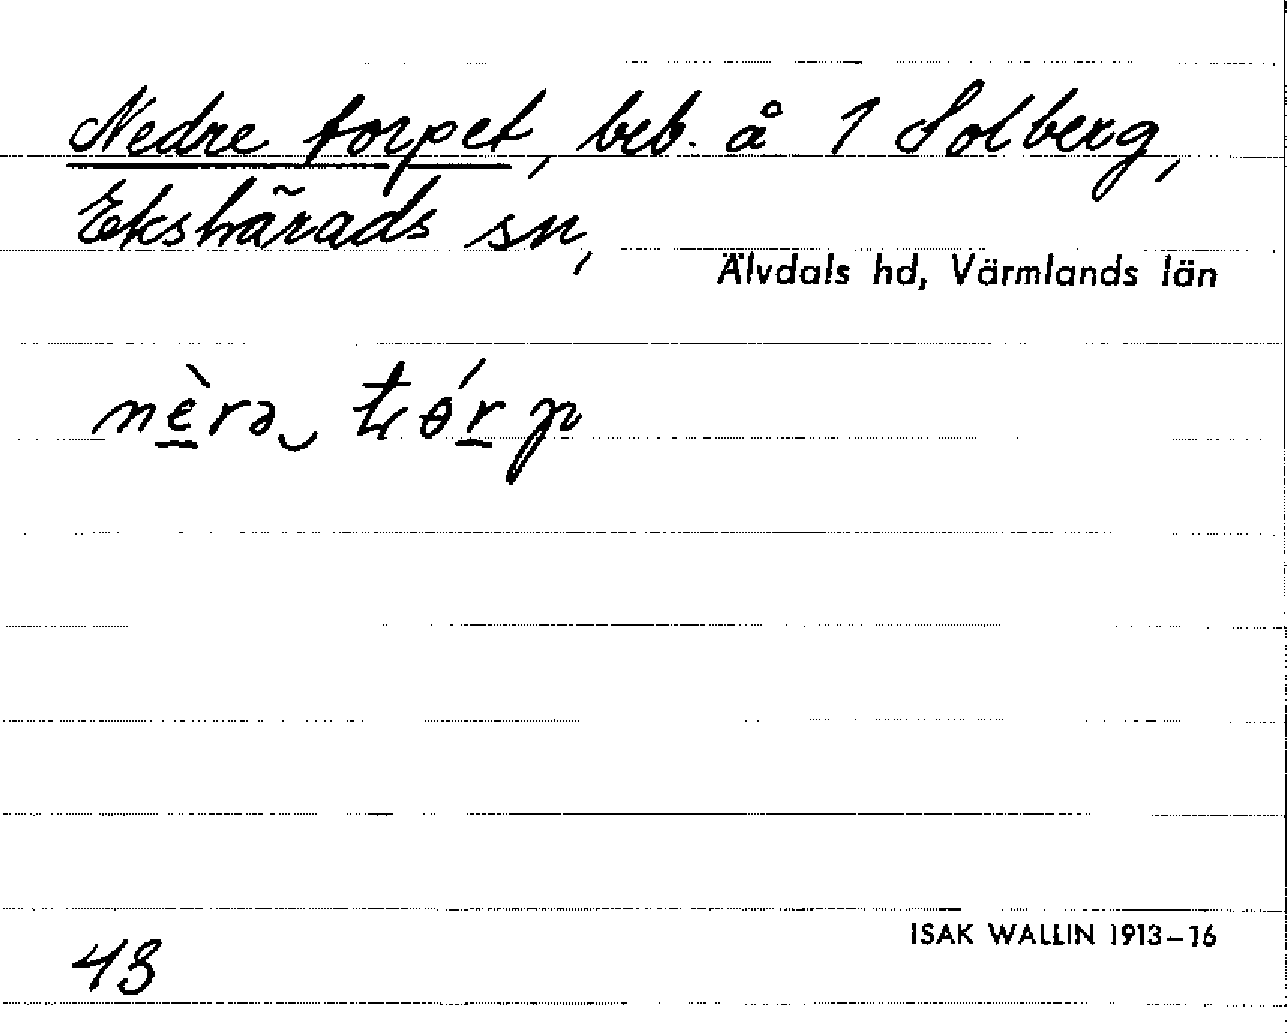 Nedre torpet, beb. å 1 Solberg,
Ekshärads sn,
Älvdals hd, Värmlands län
nèrə‿ tɵ́rp
ISAK WALLIN 1913–16
43